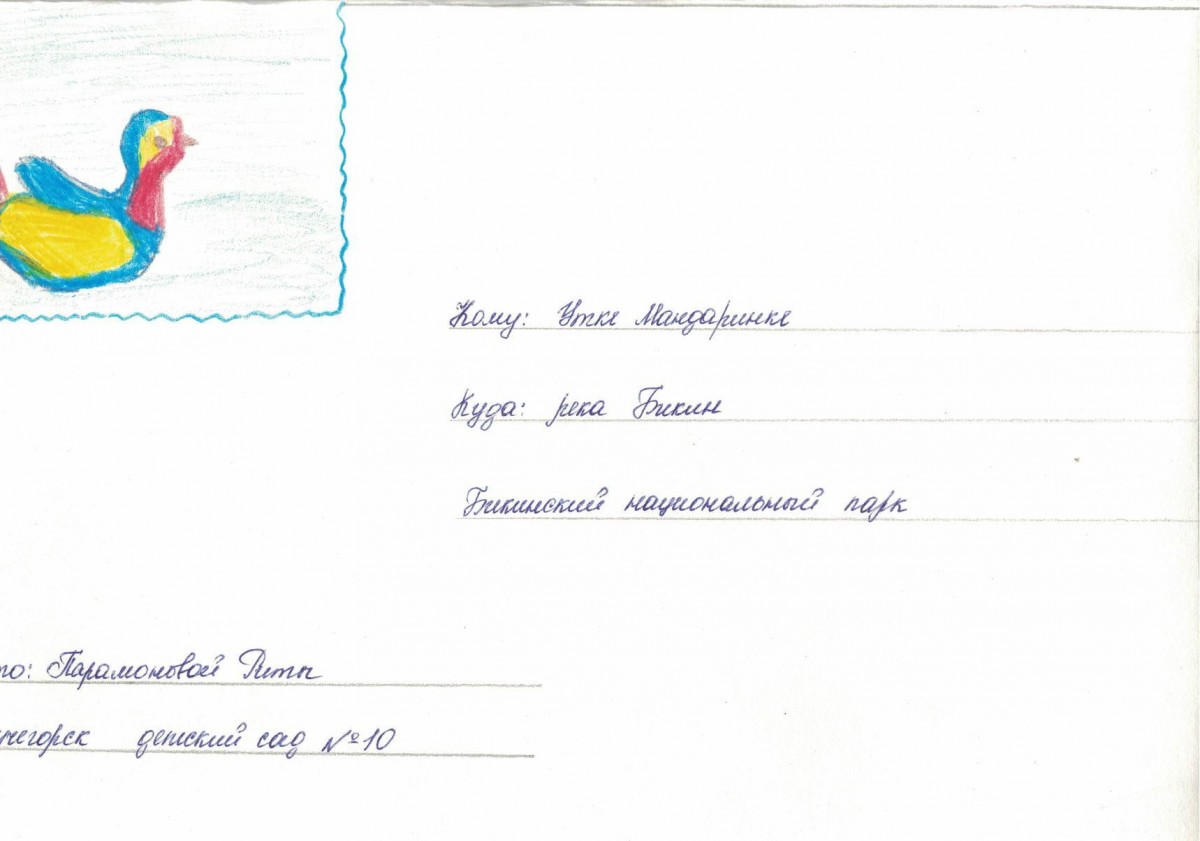 Кому: Утке Мандаринке
Куда: река Бикин
Бикинский национальный парк
го: Парамоновой Риты
чегорск детский сад №10